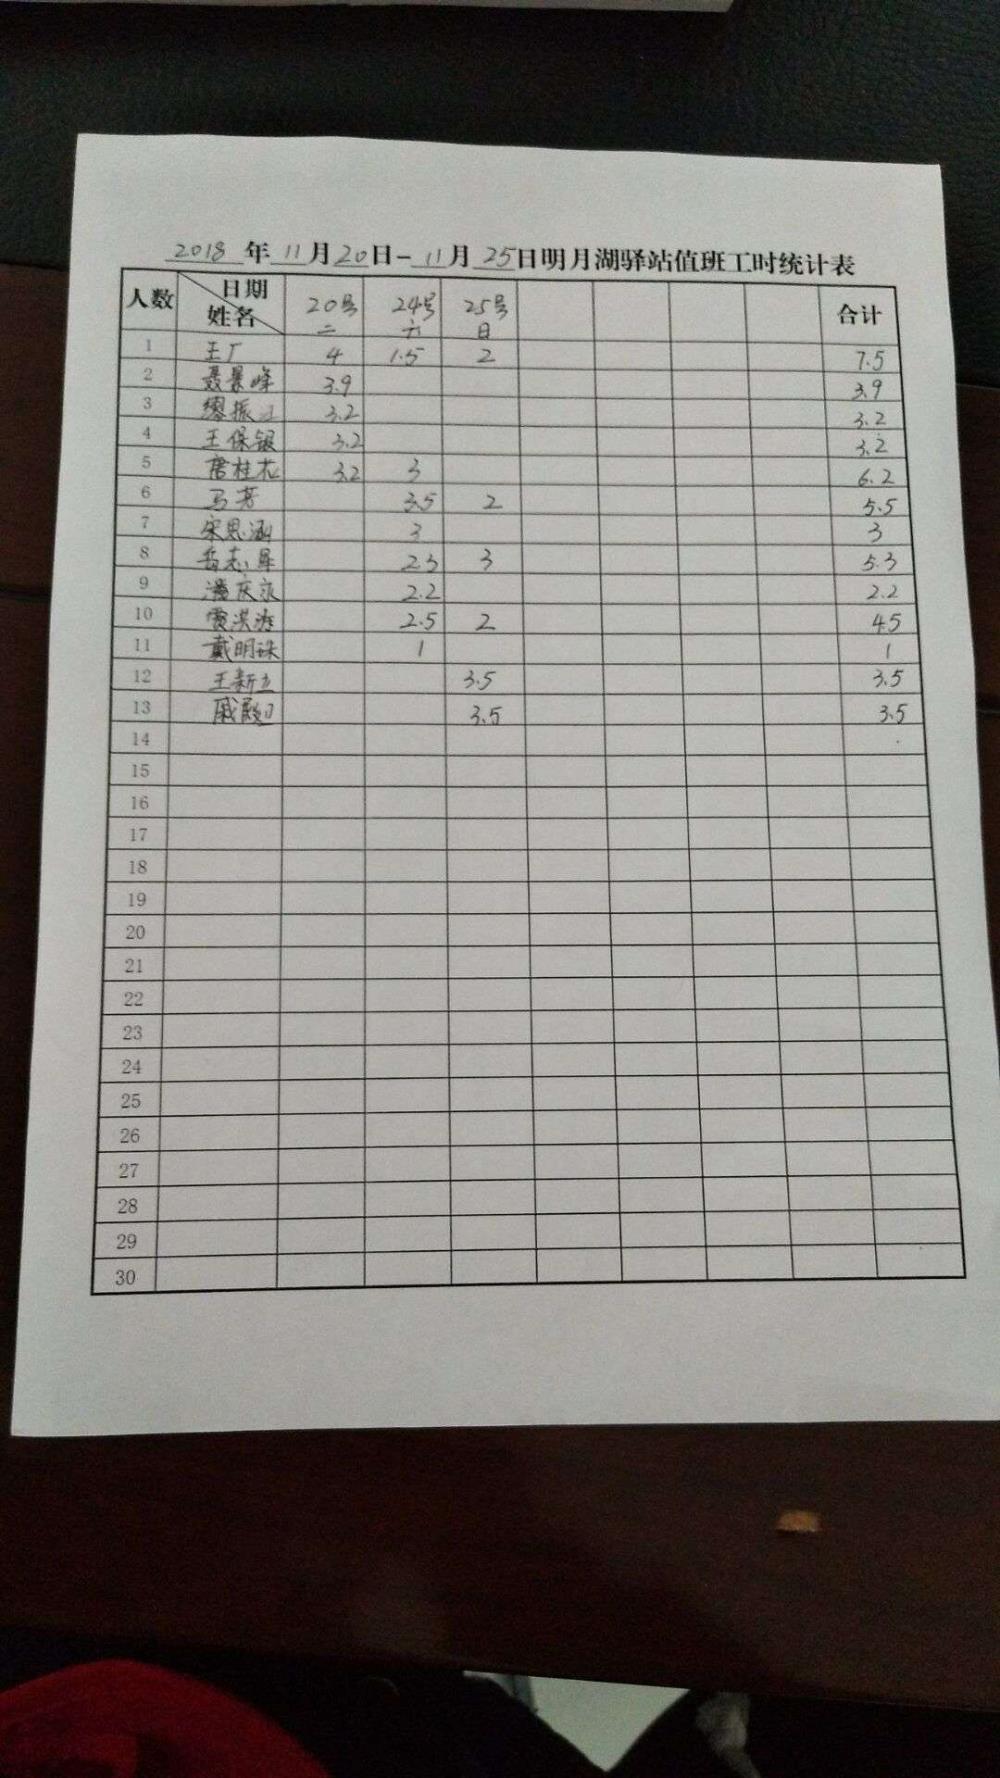 2018 年 11 月 20 日 - 11 月 25 日明月湖驿站值班工时统计表
人数 日期 姓名 20号 二 24号 六 25号 日 合计
1 王广 4 1.5 2 7.5
2 聂景峰 3.9 3.9
3 缪振江 3.2 3.2
4 王保银 3.2 3.2
5 唐桂花 3.2 3 6.2
6 马芳 3.5 2 5.5
7 宋思涵 3 3
8 岳志 2.3 3 5.3
9 潘庆永 2.2 2.2
10 洪 2.5 2 4.5
11 戴明珠 1 1
12 王新立 3.5 3.5
13 戚殿 3.5 3.5
14
15
16
17
18
19
20
21
22
23
24
25
26
27
28
29
30